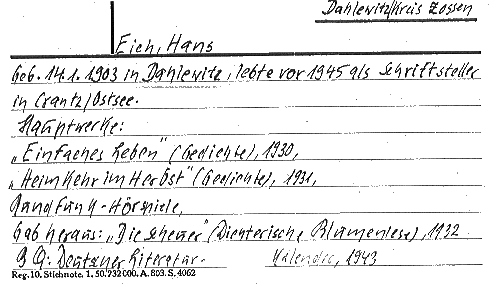 Dahlewitz/Kreis Zossen
Eich, Hans
Geb. 14.1.1903 in Dahlewitz, lebte vor 1945 als Schriftsteller
in Crantz/Ostsee.
Hauptwerke:
„Einfaches Leben" (Gedichte), 1930,
„Heimkehr im Herbst" (Gedichte), 1931,
Rundfunk-Hörspiele,
Gab heraus: „Die Scheuer" (Dichterische Blumenlese), 1922
BQ: Deutscher Literatur-Kalender, 1943
Reg. 10. Stichnote. 1. 50. 732000. A. 803. S. 4062